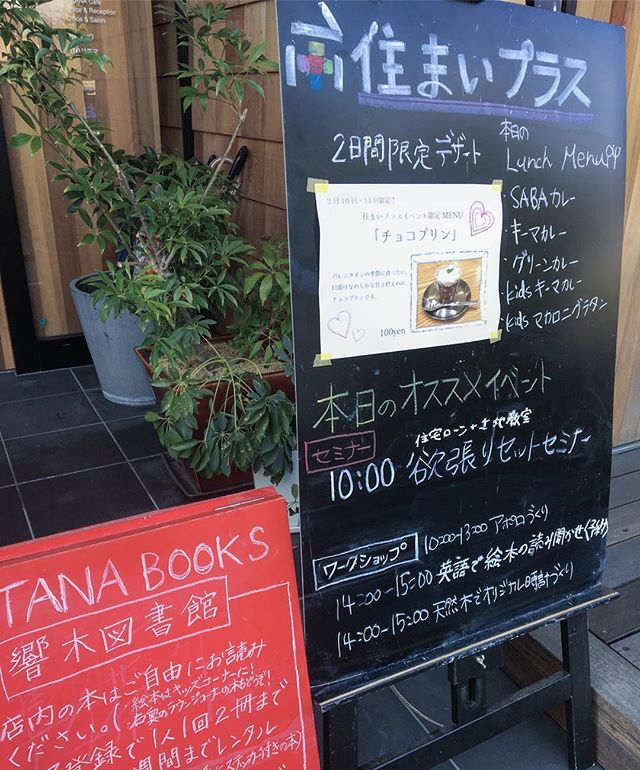 住まいプラス
2日間限定デザート
本日の
Lunch Menu
・SABAカレー
・キーマカレー
・グリーンカレー
・kidsキーマカレー
・kidsマカロニグラタン
2月10日・11日限定!
住まいプラスイベント限定MENU
「チョコプリン」
バレンタインの季節に食べたい、
口溶けなめらかな甘さ控えめの
チョコプリンです。
100yen
本日のオススメイベント
セミナー
住宅ローン+土地教室
10:00 欲張りセットセミナー
ワークショップ
10:00-13:00 アポロづくり
14:00-15:00 英語で絵本の読み聞かせ(予約)
14:00-15:00 天然木でオリジナル時計づくり
TANA BOOKS
響木図書館
店内の本はご自由にお読み
ください。
絵本はキッズコーナーに!
お奥のラウンジコーナーの本もどうぞ!
登録で1人1回2冊まで
週間までレンタル